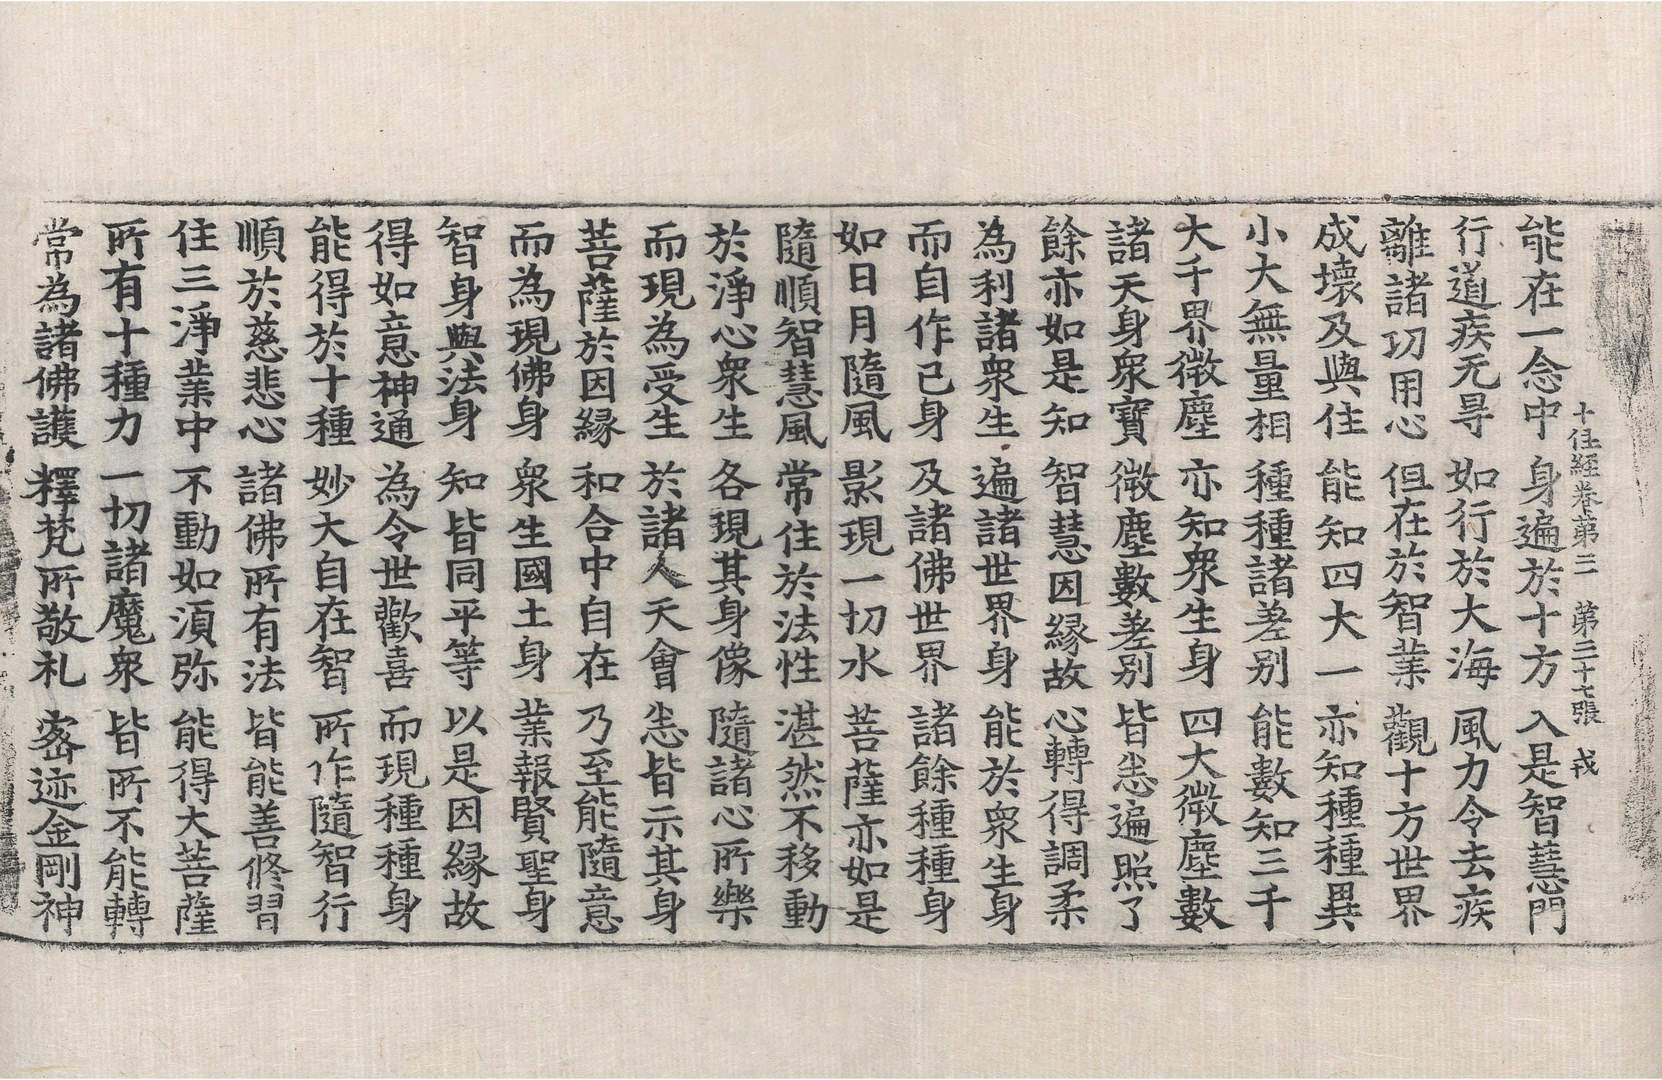 十住經卷第三　第三十七張　戎
能在一念中　身遍於十方　入是智慧門
行道疾无㝵　如行於大海　風力令去疾
離諸功用心　但在於智業　觀十方世界
成壞及與住　能知四大一　亦知種種異
小大無量相　種種諸差別　能數知三千
大千界微塵　亦知衆生身　四大微塵數
諸天身衆寶　微塵數差別　皆悉遍照了
餘亦如是知　智慧因緣故　心轉得調柔
為利諸衆生　遍諸世界身　能於衆生身
而自作己身　及諸佛世界　諸餘種種身
如日月隨風　影現一切水　菩薩亦如是
隨順智慧風　常住於法性　湛然不移動
於淨心衆生　各現其身像　隨諸心所樂
而現為受生　於諸人天會　悉皆示其身
菩薩於因緣　和合中自在　乃至能隨意
而為現佛身　衆生國土身　業報賢聖身
智身與法身　知皆同平等　以是因緣故
得如意神通　為令世歡喜　而現種種身
能得於十種　妙大自在智　所作隨智行
順於慈悲心　諸佛所有法　皆能善修習
住三淨業中　不動如須弥　能得大菩薩
所有十種力　一切諸魔衆　皆所不能轉
常為諸佛護　釋梵所敬礼　密迹金剛神